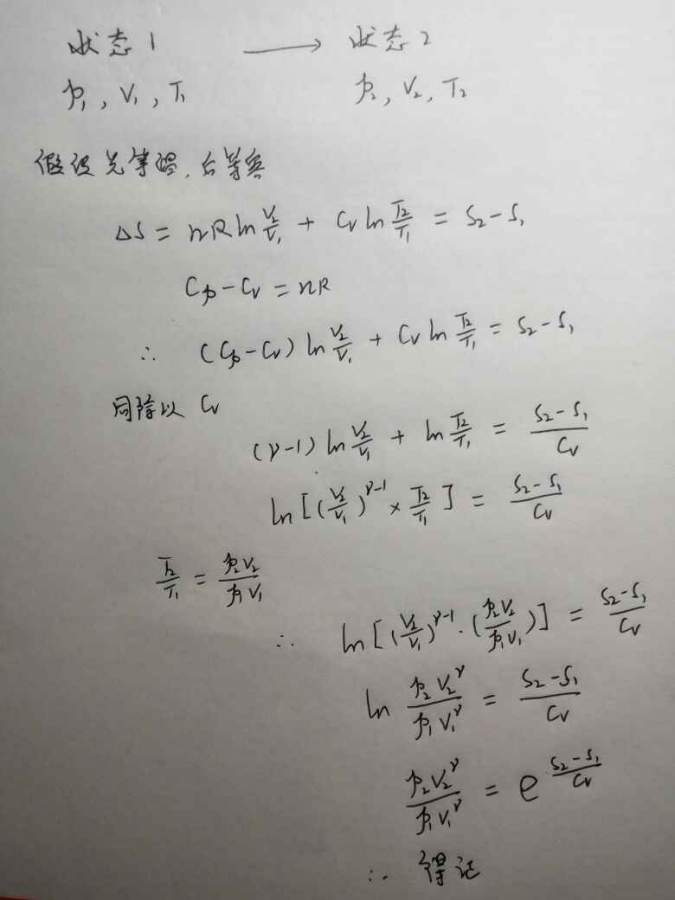 状态1 ⟶ 状态2
p₁, V₁, T₁ p₂, V₂, T₂
假设先等温,后等容
ΔS = nR ln V₂/V₁ + Cv ln T₂/T₁ = S₂-S₁
Cp-Cv = nR
∴ (Cp-Cv) ln V₂/V₁ + Cv ln T₂/T₁ = S₂-S₁
同除以 Cv
(γ-1) ln V₂/V₁ + ln T₂/T₁ = (S₂-S₁)/Cv
ln[(V₂/V₁)^(γ-1) × T₂/T₁] = (S₂-S₁)/Cv
T₂/T₁ = p₂V₂/p₁V₁
∴ ln[(V₂/V₁)^(γ-1) · (p₂V₂/p₁V₁)] = (S₂-S₁)/Cv
ln p₂V₂^γ/p₁V₁^γ = (S₂-S₁)/Cv
p₂V₂^γ/p₁V₁^γ = e^((S₂-S₁)/Cv)
∴ 得证